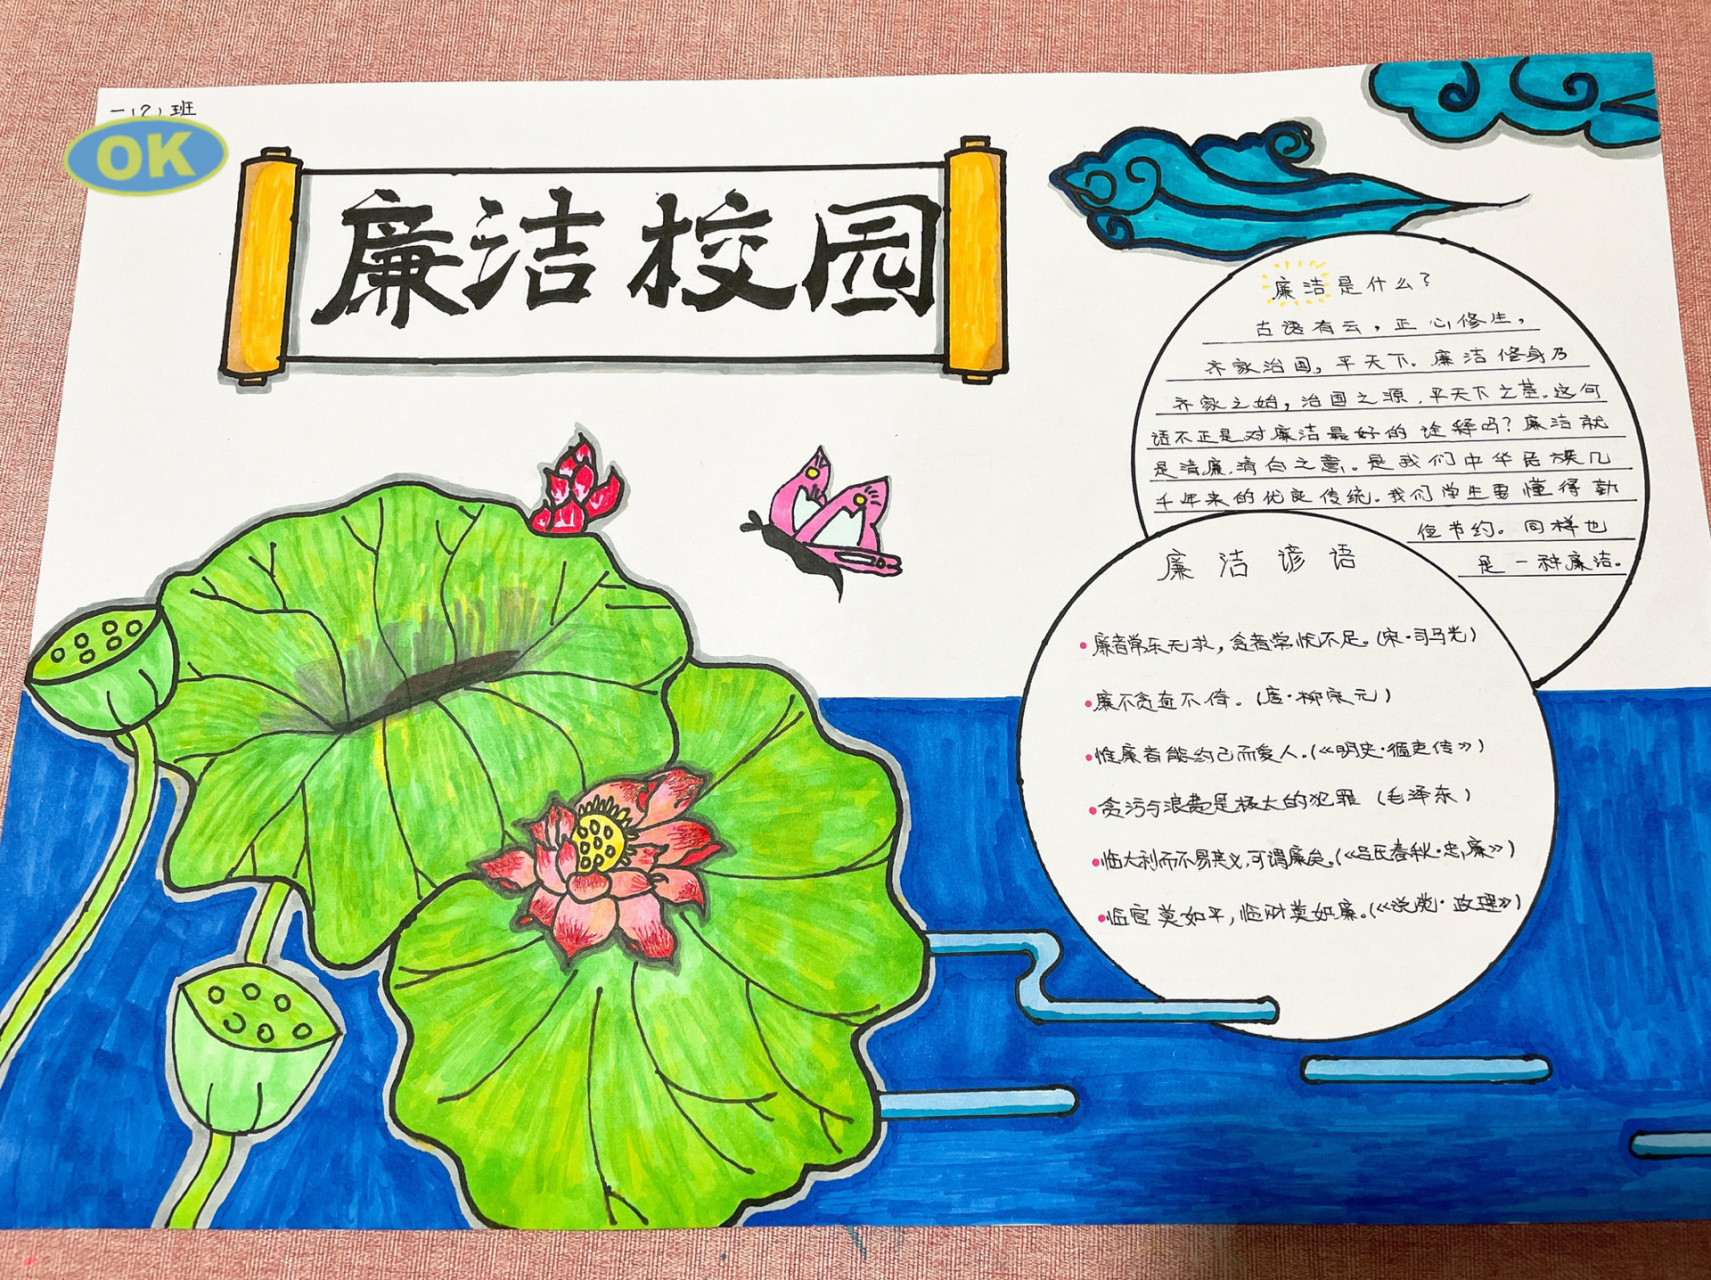 一(2)班
OK
廉洁校园
廉洁是什么?
古语有云，正心修生，
齐家治国，平天下。廉洁修身乃
齐家之始，治国之源，平天下之基。这句
话不正是对廉洁最好的诠释吗？廉洁就
是清廉，清白之意。是我们中华民族几
千年来的优良传统。我们学生要懂得勤
俭节约。同样也
是一种廉洁。
廉洁谚语
•廉者常乐无求，贪者常忧不足。(宋·司马光)
•廉不贪直不倚。(唐·柳宗元)
•惟廉者能约己而爱人。(《明史·循吏传》)
•贪污与浪费是极大的犯罪 (毛泽东)
•临大利而不易其义，可谓廉矣。(《吕氏春秋·忠廉》)
•临官莫如平，临财莫如廉。(《说苑·政理》)